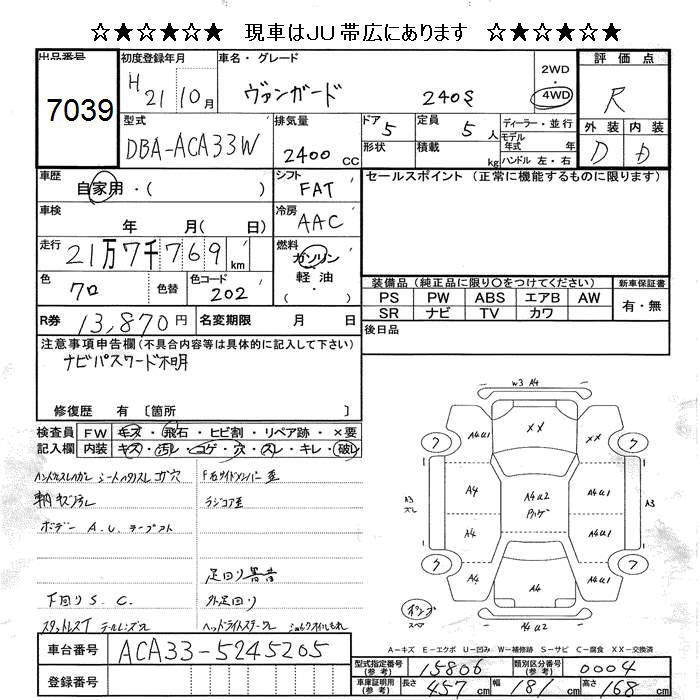 ☆★☆★☆★ 現車はJU帯広にあります ☆★☆★☆★
出品番号 7039
初度登録年月 H 21 10月
車名・グレード ヴァンガード 240S
2WD 4WD
評価点 R
外装 内装
D D
型式 DBA-ACA33W
排気量 2400 CC
ドア 5 形状
定員 5 人 積載 kg
ディーラー・並行
モデル年式 年
ハンドル 左・右
車歴 自家用・( )
シフト FAT
セールスポイント (正常に機能するものに限ります)
車検 年 月( 日)
冷房 AAC
走行 21万7千769 km
燃料 ガソリン 軽油・
色 クロ 色替
色コード 202
装備品(純正品に限り〇をつけてください) 新車保証書
PS PW ABS エアB AW 有・無
SR ナビ TV カワ
R券 13,870円 名変期限 月 日
後日品
注意事項申告欄(不具合内容等は具体的に記入して下さい)
ナビパスワード不明
修復歴 有〔箇所 〕
検査員記入欄 FW キズ・飛石・ヒビ割・リペア跡・×要
内装 キズ・汚レ・コゲ・穴・スレ・キレ・破レ
ボデー A.U.
ラジコア歪
足回り異音
下回りS.C.
外足回り
W3 A4
XX
A4U1
A4U1
ワ
ワ
A3 スレ
A4
A4U2
A4U1
A3
A4
A4U1
ワ
ワ
A4
A4U2
A-キズ E-エクボ U-凹み W-補修跡 S-サビ C-腐食 XX-交換済
車台番号 ACA33-5245205
登録番号
型式指定番号(参考) 15806
類別区分番号(参考) 0004
車庫証明用(参考) 長さ 457 cm 幅 181 cm 高さ 168 cm